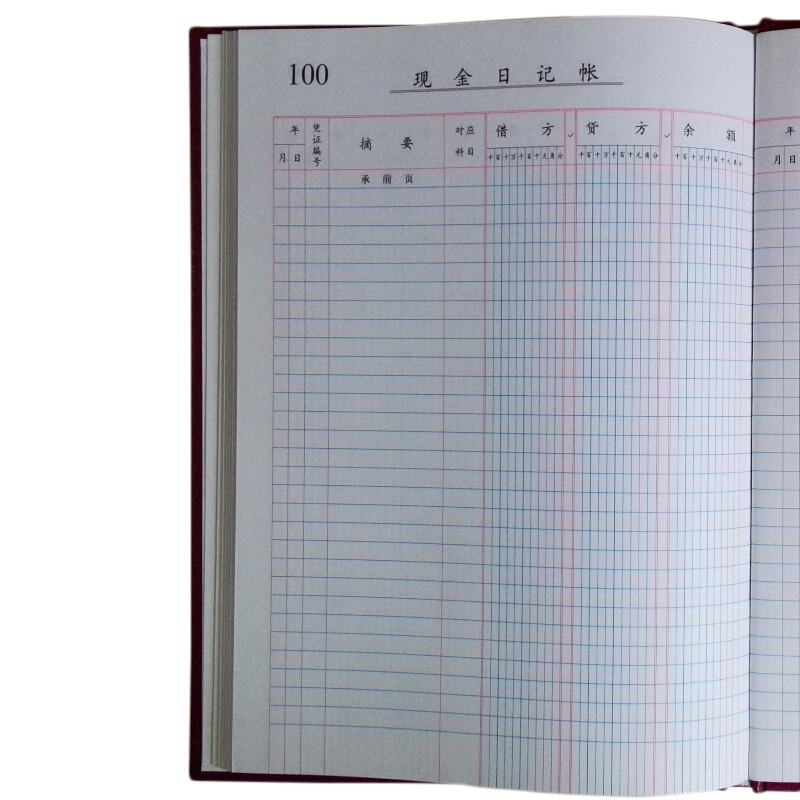 100
现金日记帐
年 凭证编号 摘要 对应科目 借方 ✓ 贷方 ✓ 余额
月 日 千百十万千百十元角分 千百十万千百十元角分 千百十万千百十元角分
承前页
年
月 日